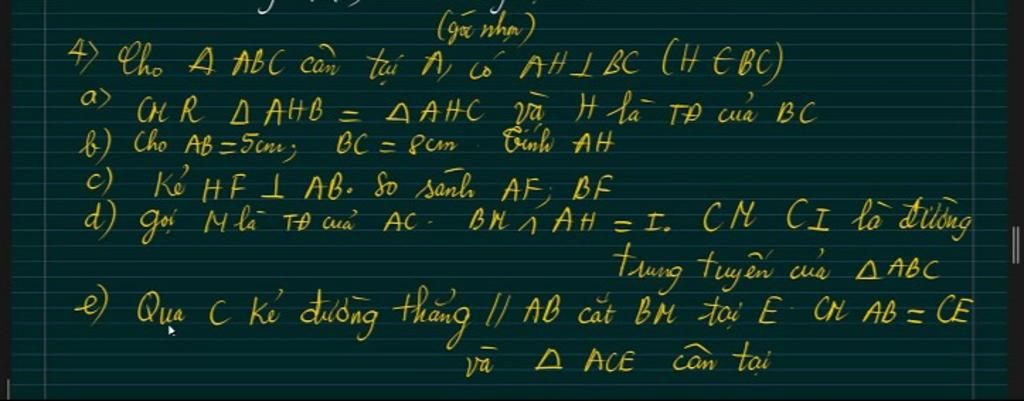 (góc nhọn)
4) Cho Δ ABC cân tại A, có AH ⊥ BC (H ∈ BC)
a) CMR Δ AHB = Δ AHC và H là TĐ của BC
b) Cho AB = 5cm; BC = 8cm Tính AH
c) Kẻ HF ⊥ AB. So sánh AF; BF
d) gọi M là TĐ của AC. BM ∩ AH = I. CM CI là đường
trung tuyến của Δ ABC
e) Qua C kẻ đường thẳng // AB cắt BM tại E CM AB = CE
và Δ ACE cân tại